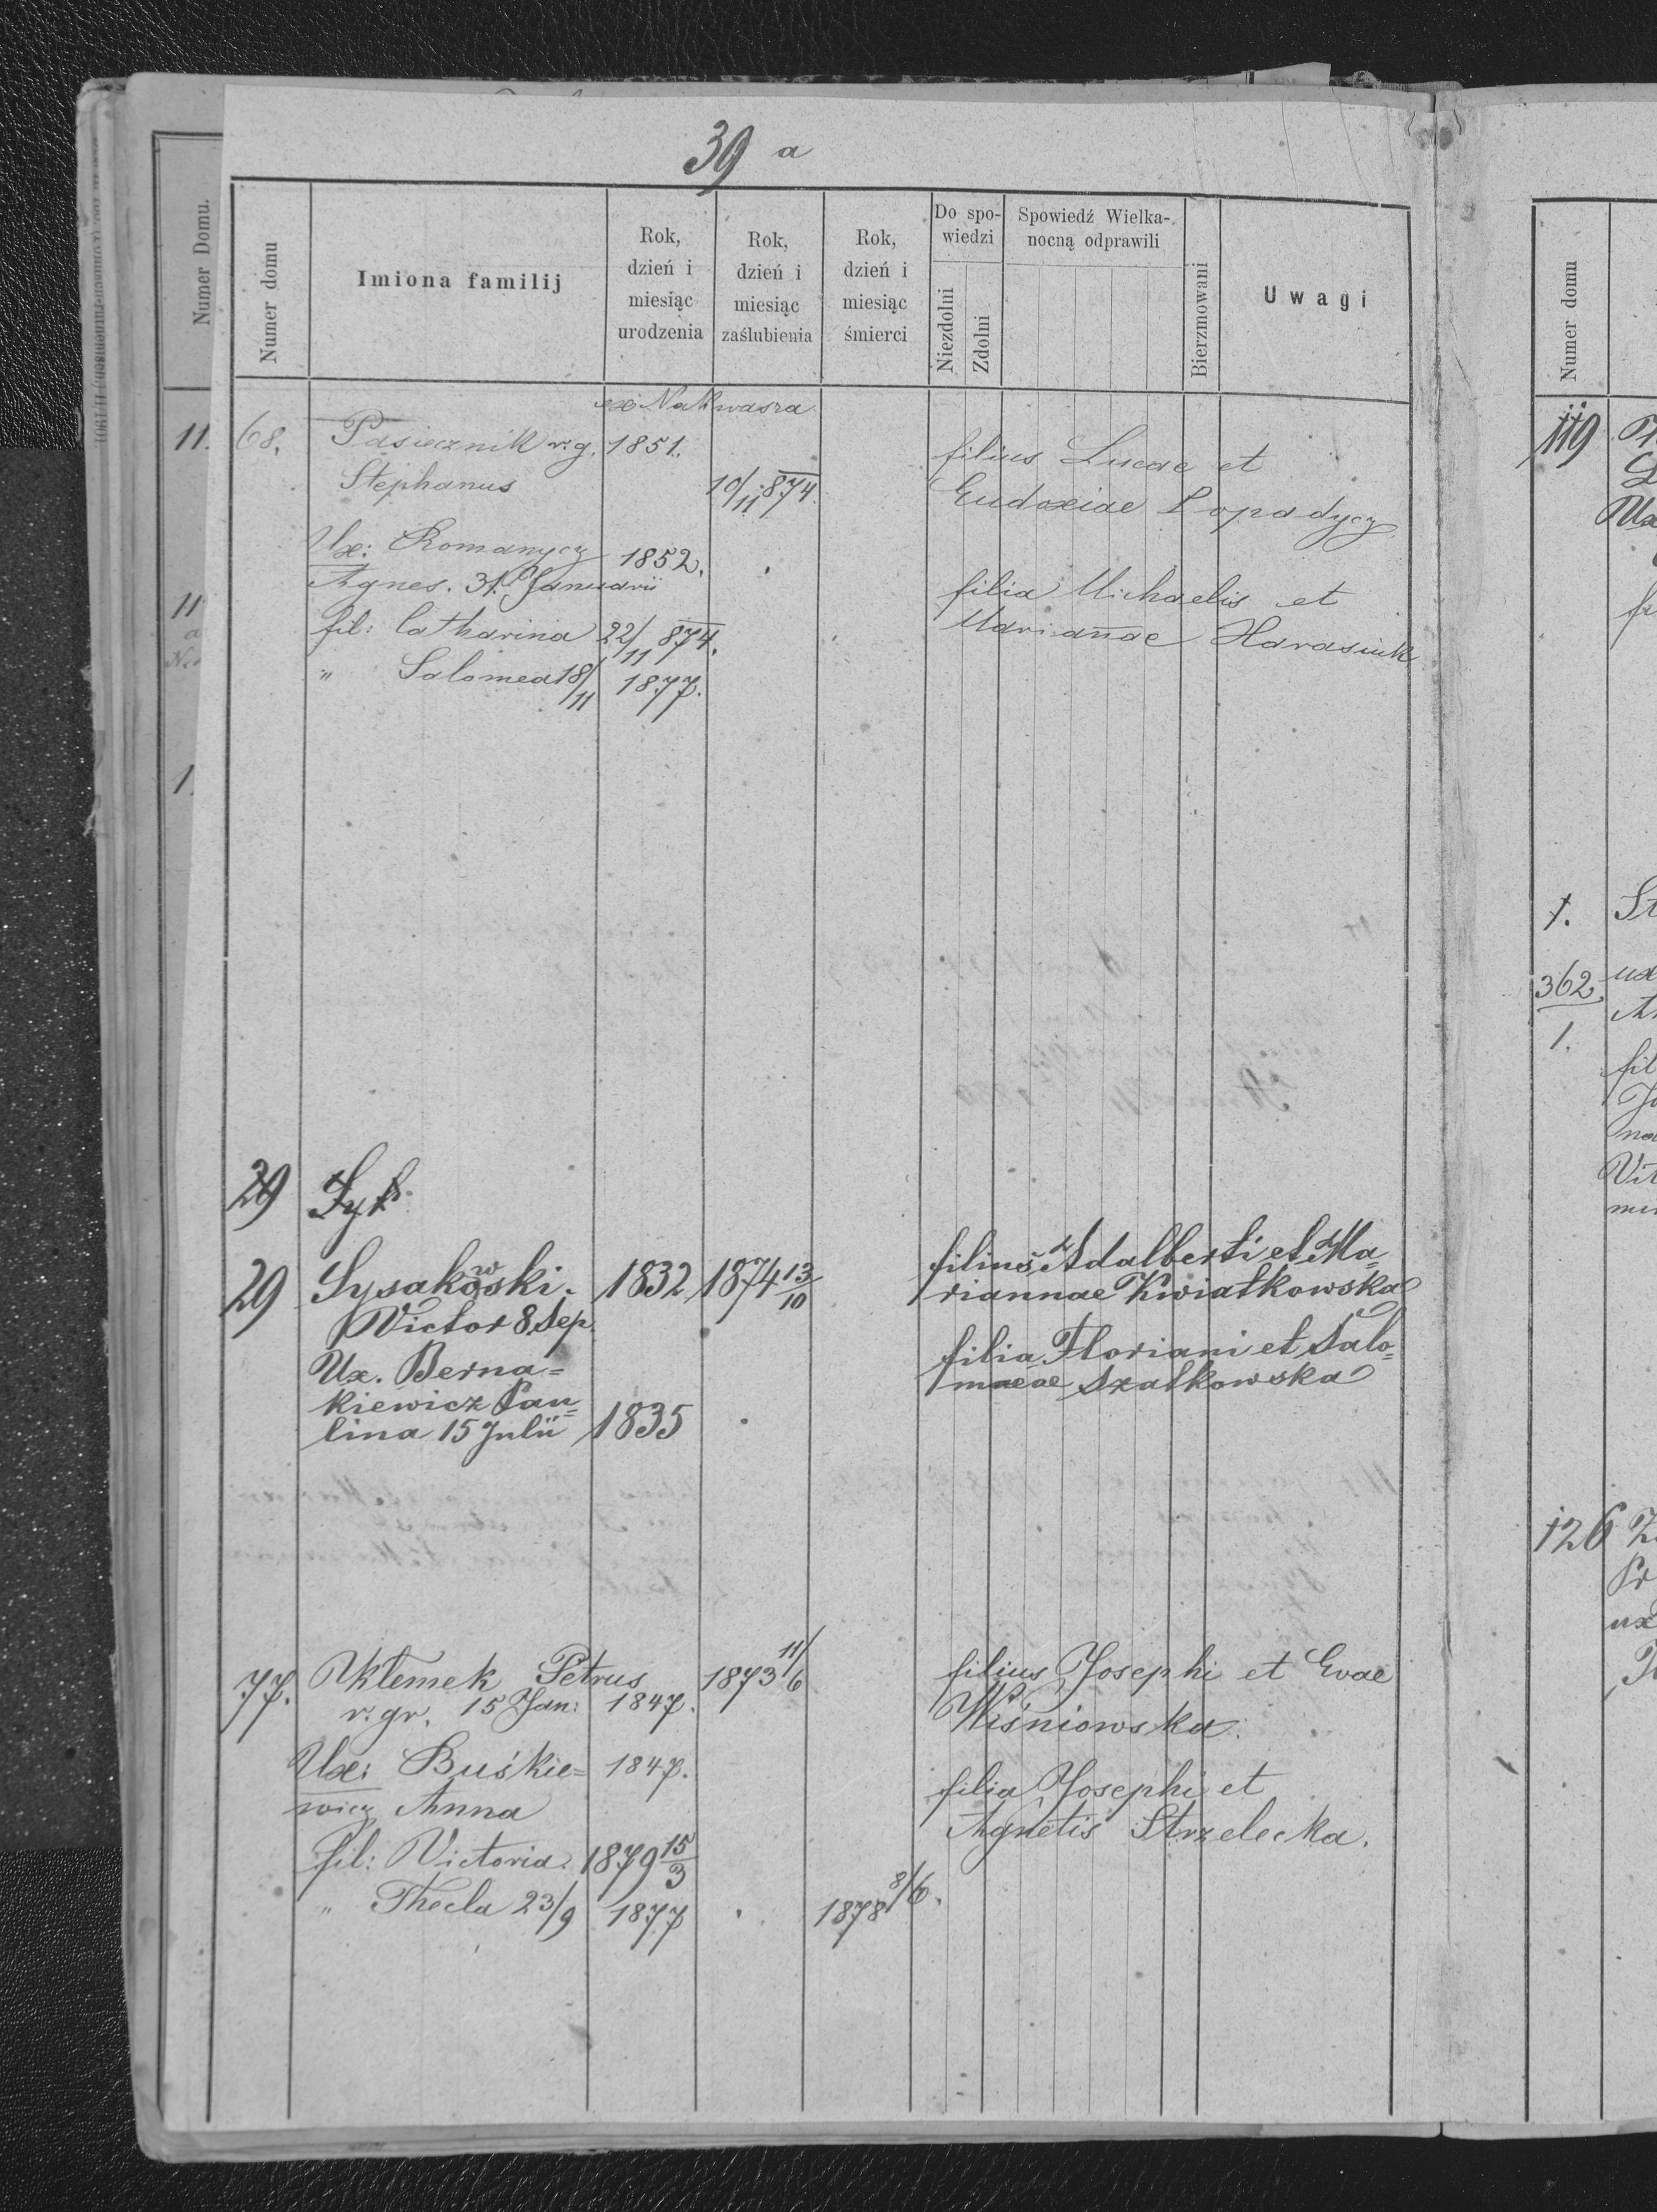 39 a
Numer Domu.
Numer domu
Imiona familij
Rok, dzień i miesiąc urodzenia
Rok, dzień i miesiąc zaślubienia
Rok, dzień i miesiąc śmierci
Do spowiedzi
Niezdolni
Zdolni
Spowiedź Wielkanocną odprawili
Bierzmowani
Uwagi
Numer domu
ex Nakwasza
68. Pasiecznik r. g. 1851. filius Lucae et
Stephanus 10/11 874. Eudoxiae Popadycz
Ux: Romanycz 1852.
Agnes. 31. Januarii filia Michaelis et
fil: Catharina 22/11 874. Mariannae Harasiuk
" Salomea 18/11 1877.
29 Sys
29 Sysakowski. 1832 1874 13/10 filius Adalberti et Ma=
riannae Kwiatkowska
Victor 8 Sep.
Ux. Berna= filia Floriani et Salo=
kiewicz Pau= maeae Szatkowska
lina 15 Julii 1835
77. Klemek Petrus 1873 11/6 filius Josephi et Evae
r. gr. 15 Jan: 1847. Wiśniowska.
Ux: Buśkie= 1847. filia Josephi et
wicz Anna Agnetis Strzelecka.
fil: Victoria. 1879 15/3
" Thecla 23/9 1877 1878 8/6.
119
Ux
1. St
362
1.
ux
fil
Vit
126
ux